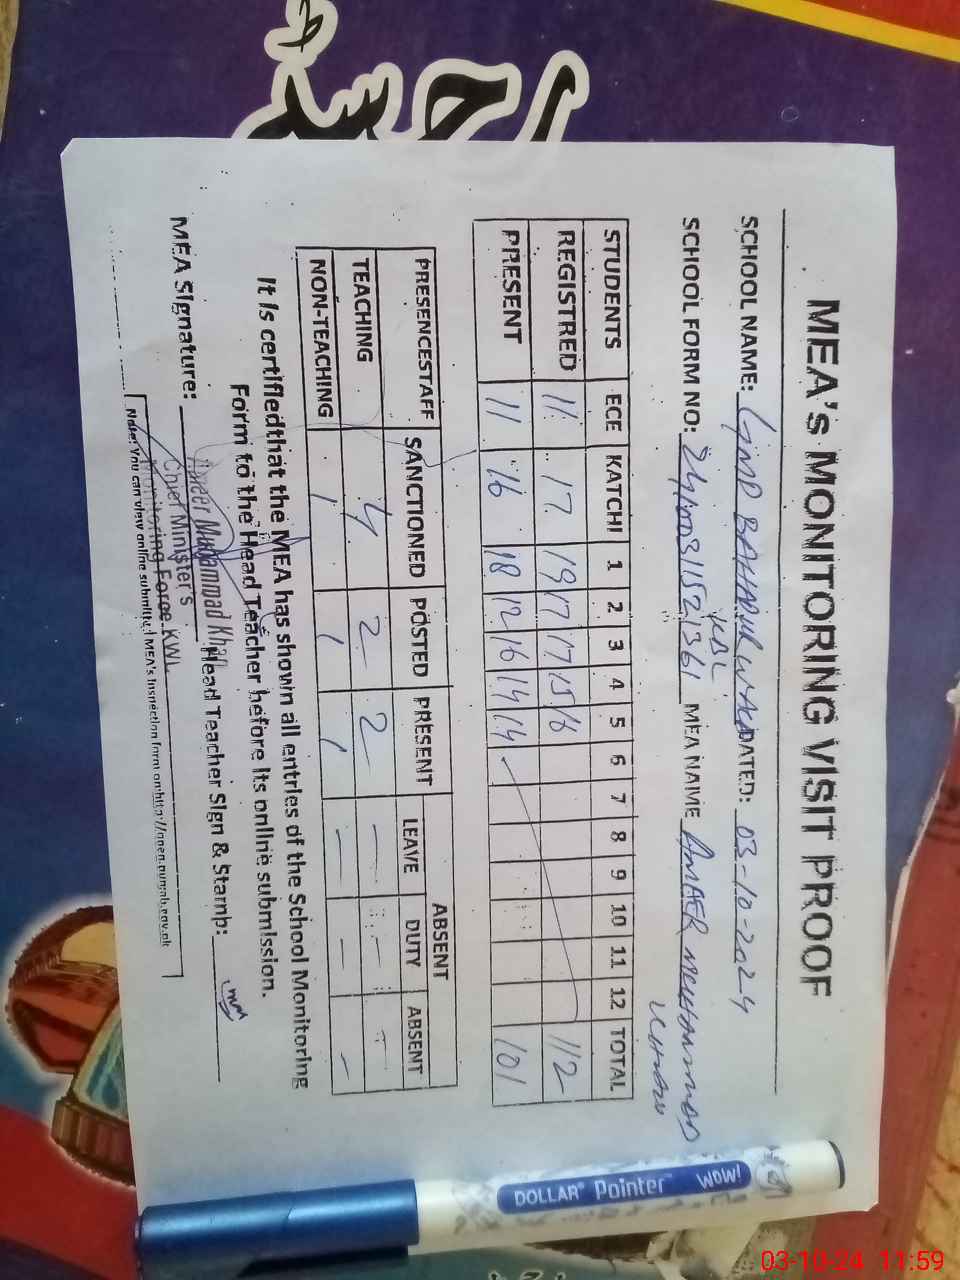 MEA's MONITORING VISIT PROOF
SCHOOL NAME: GMP BAHADUR WALA DATED: 03-10-2024
KBL
SCHOOL FORM NO: MEA NAME AMEER MUHAMMAD
KHAN
STUDENTS ECE KATCHI 1 2 3 4 5 6 7 8 9 10 11 12 TOTAL
REGISTRED 11 17 19 17 17 15 16 112
PRESENT 11 16 18 12 16 14 14 101
PRESENCESTAFF SANCTIONED POSTED PRESENT ABSENT
LEAVE DUTY ABSENT
TEACHING 4 2 2 - - -
NON-TEACHING 1 1 1 - - -
It is certifiedthat the MEA has shown all entries of the School Monitoring
Form to the Head Teacher before its online submission.
MEA Signature: Head Teacher Sign & Stamp:
Ameer Muhammad Khan
Chief Minister's
Monitoring Force KWL
Note: You can view online submitted MEA's Inspection form on http://open.punjab.gov.pk
DOLLAR Pointer WOW!
03-10-24 11:59